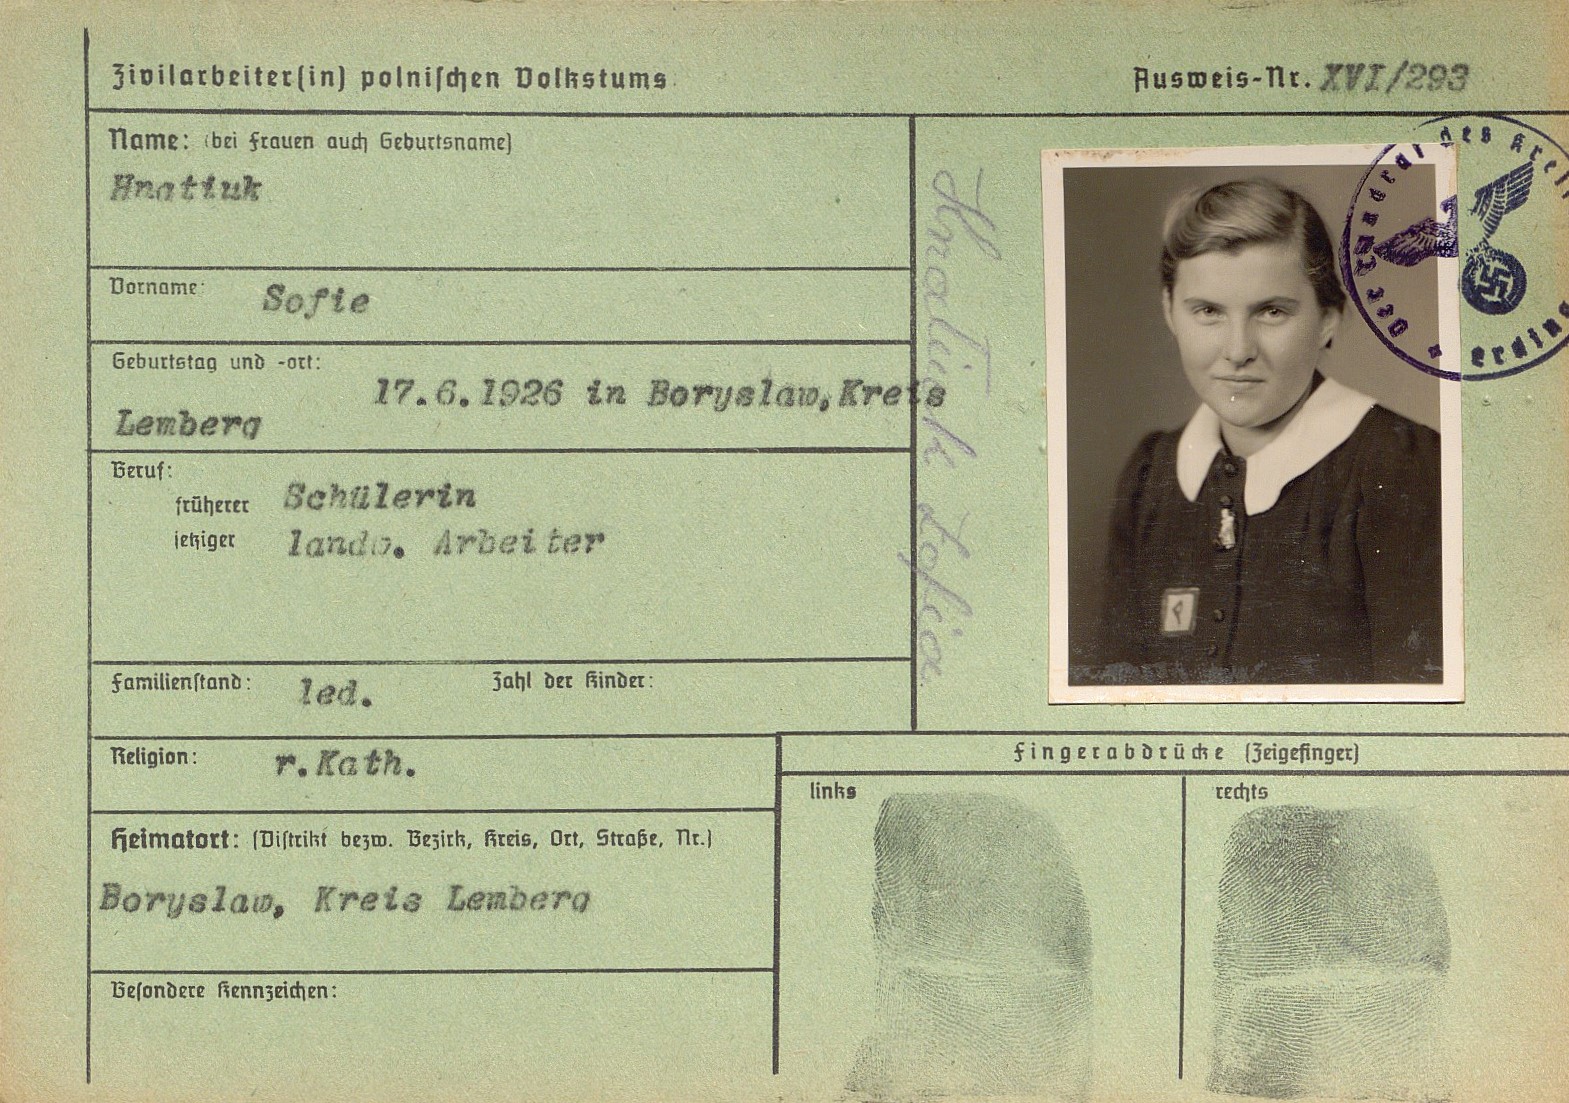 Zivilarbeiter(in) polnischen Volkstums
Ausweis-Nr. XVI/293
Name: (bei Frauen auch Geburtsname)
Hnatiuk
Vorname:
Sofie
Geburtstag und -ort:
17.6.1926 in Boryslaw, Kreis
Lemberg
Beruf:
früherer Schülerin
jetziger landw. Arbeiter
Familienstand: led. Zahl der Kinder:
Religion: r.Kath.
Heimatort: (Distrikt bezw. Bezirk, Kreis, Ort, Straße, Nr.)
Boryslaw, Kreis Lemberg
Besondere Kennzeichen:
Hnatiuk Zofia
P
Der Landrat des Kreis
Erding
Fingerabdrücke (Zeigefinger)
links
rechts